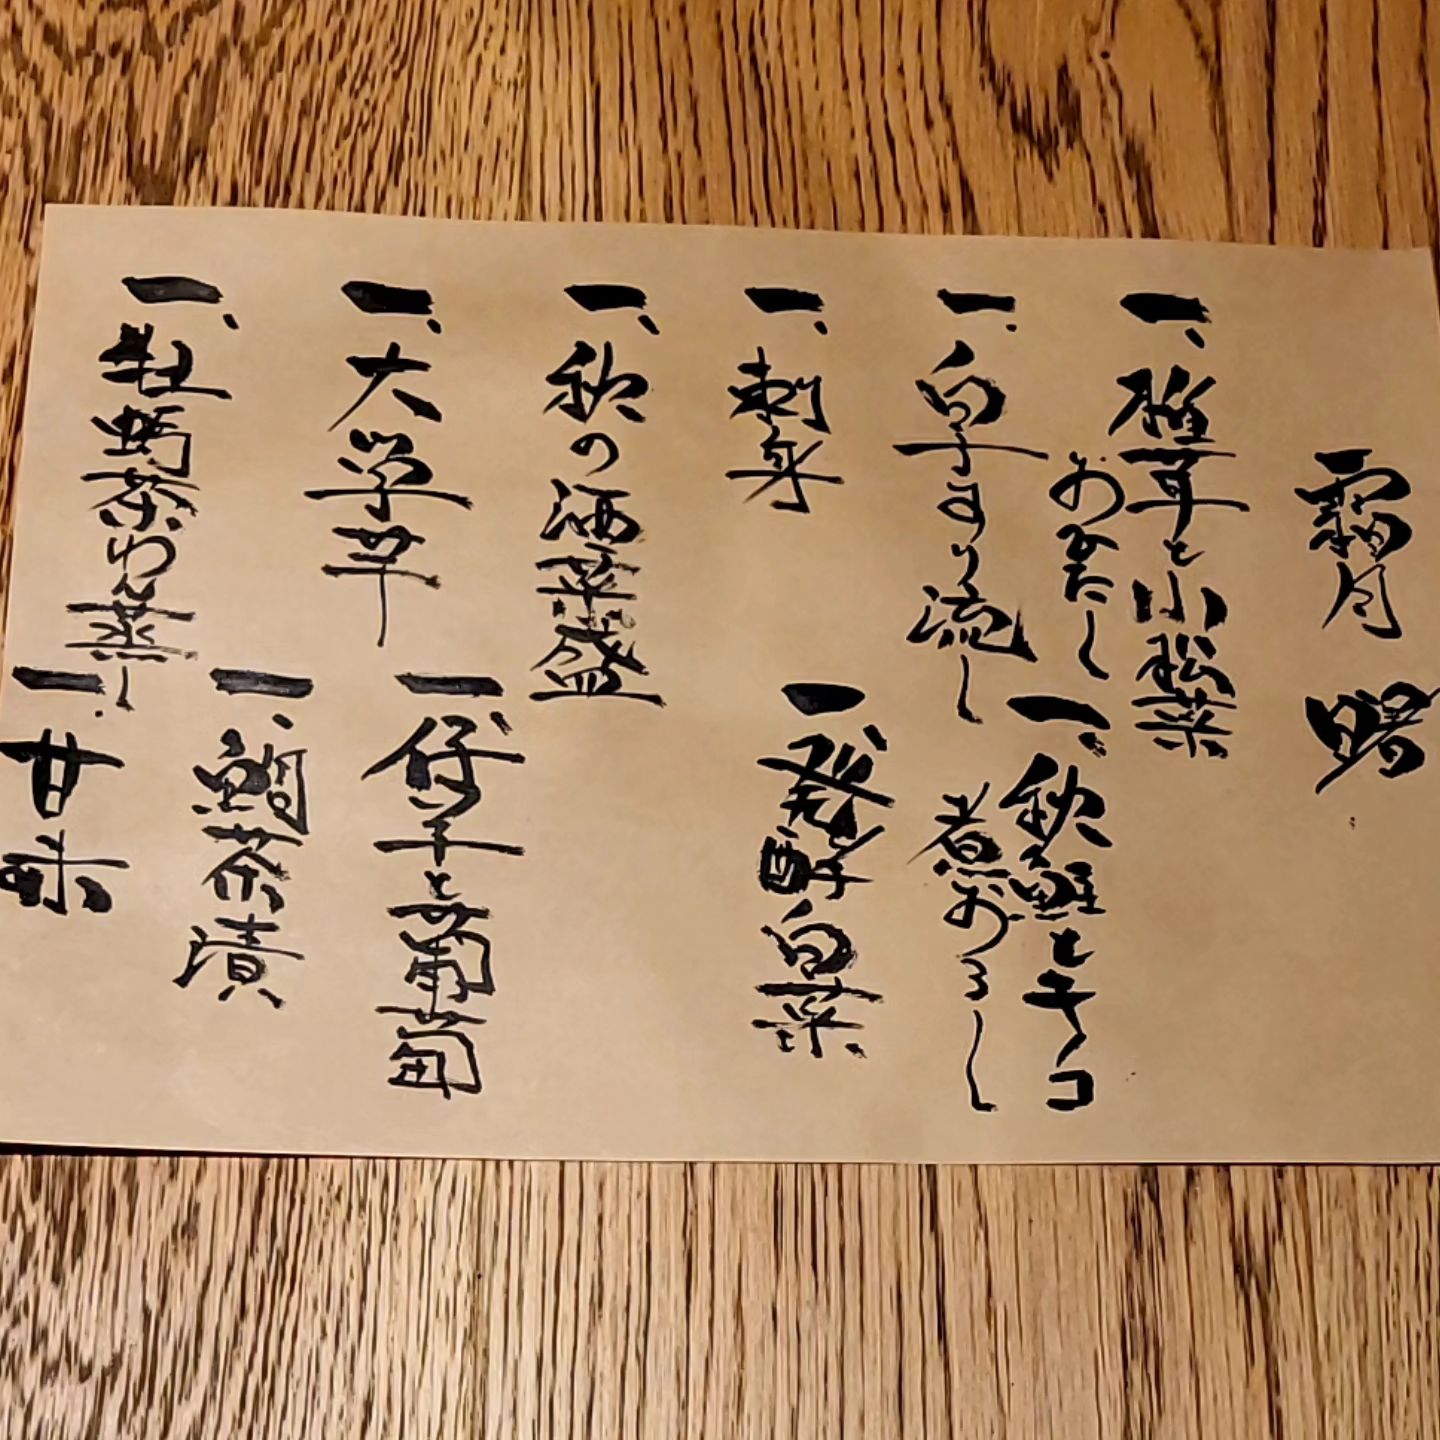 霜月 曙
一、椎茸と小松菜
おひたし
一、白子すり流し
一、秋鮭とキノコ
煮おろし
一、刺身
一、発酵白菜
一、秋の酒菜盛
一、大学芋
一、仔羊と葡萄
一、牡蠣茶わん蒸し
一、鯛茶漬
一、甘味